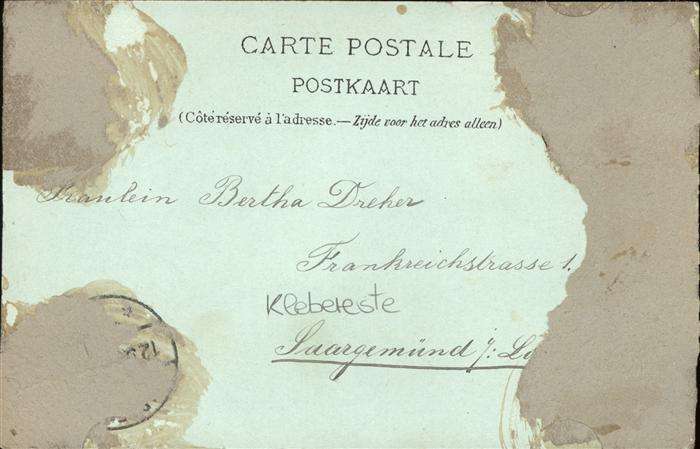 CARTE POSTALE
POSTKAART
(Côté réservé à l'adresse.—Zijde voor het adres alleen)
Fräulein Bertha Dreher
Frankreichstrasse 1.
Klebereste
Saargemünd /: Lo
12